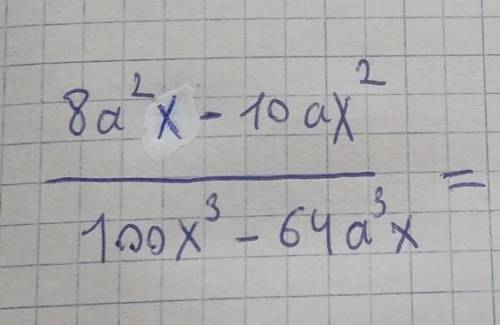 8a²x - 10ax²
100x³ - 64a³x =